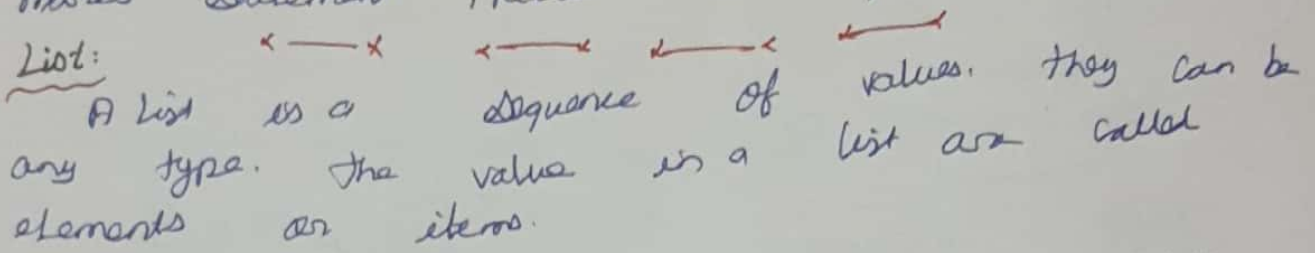 List:
A List is a sequence of values. they can be
any type. the value in a list are called
elements or items.